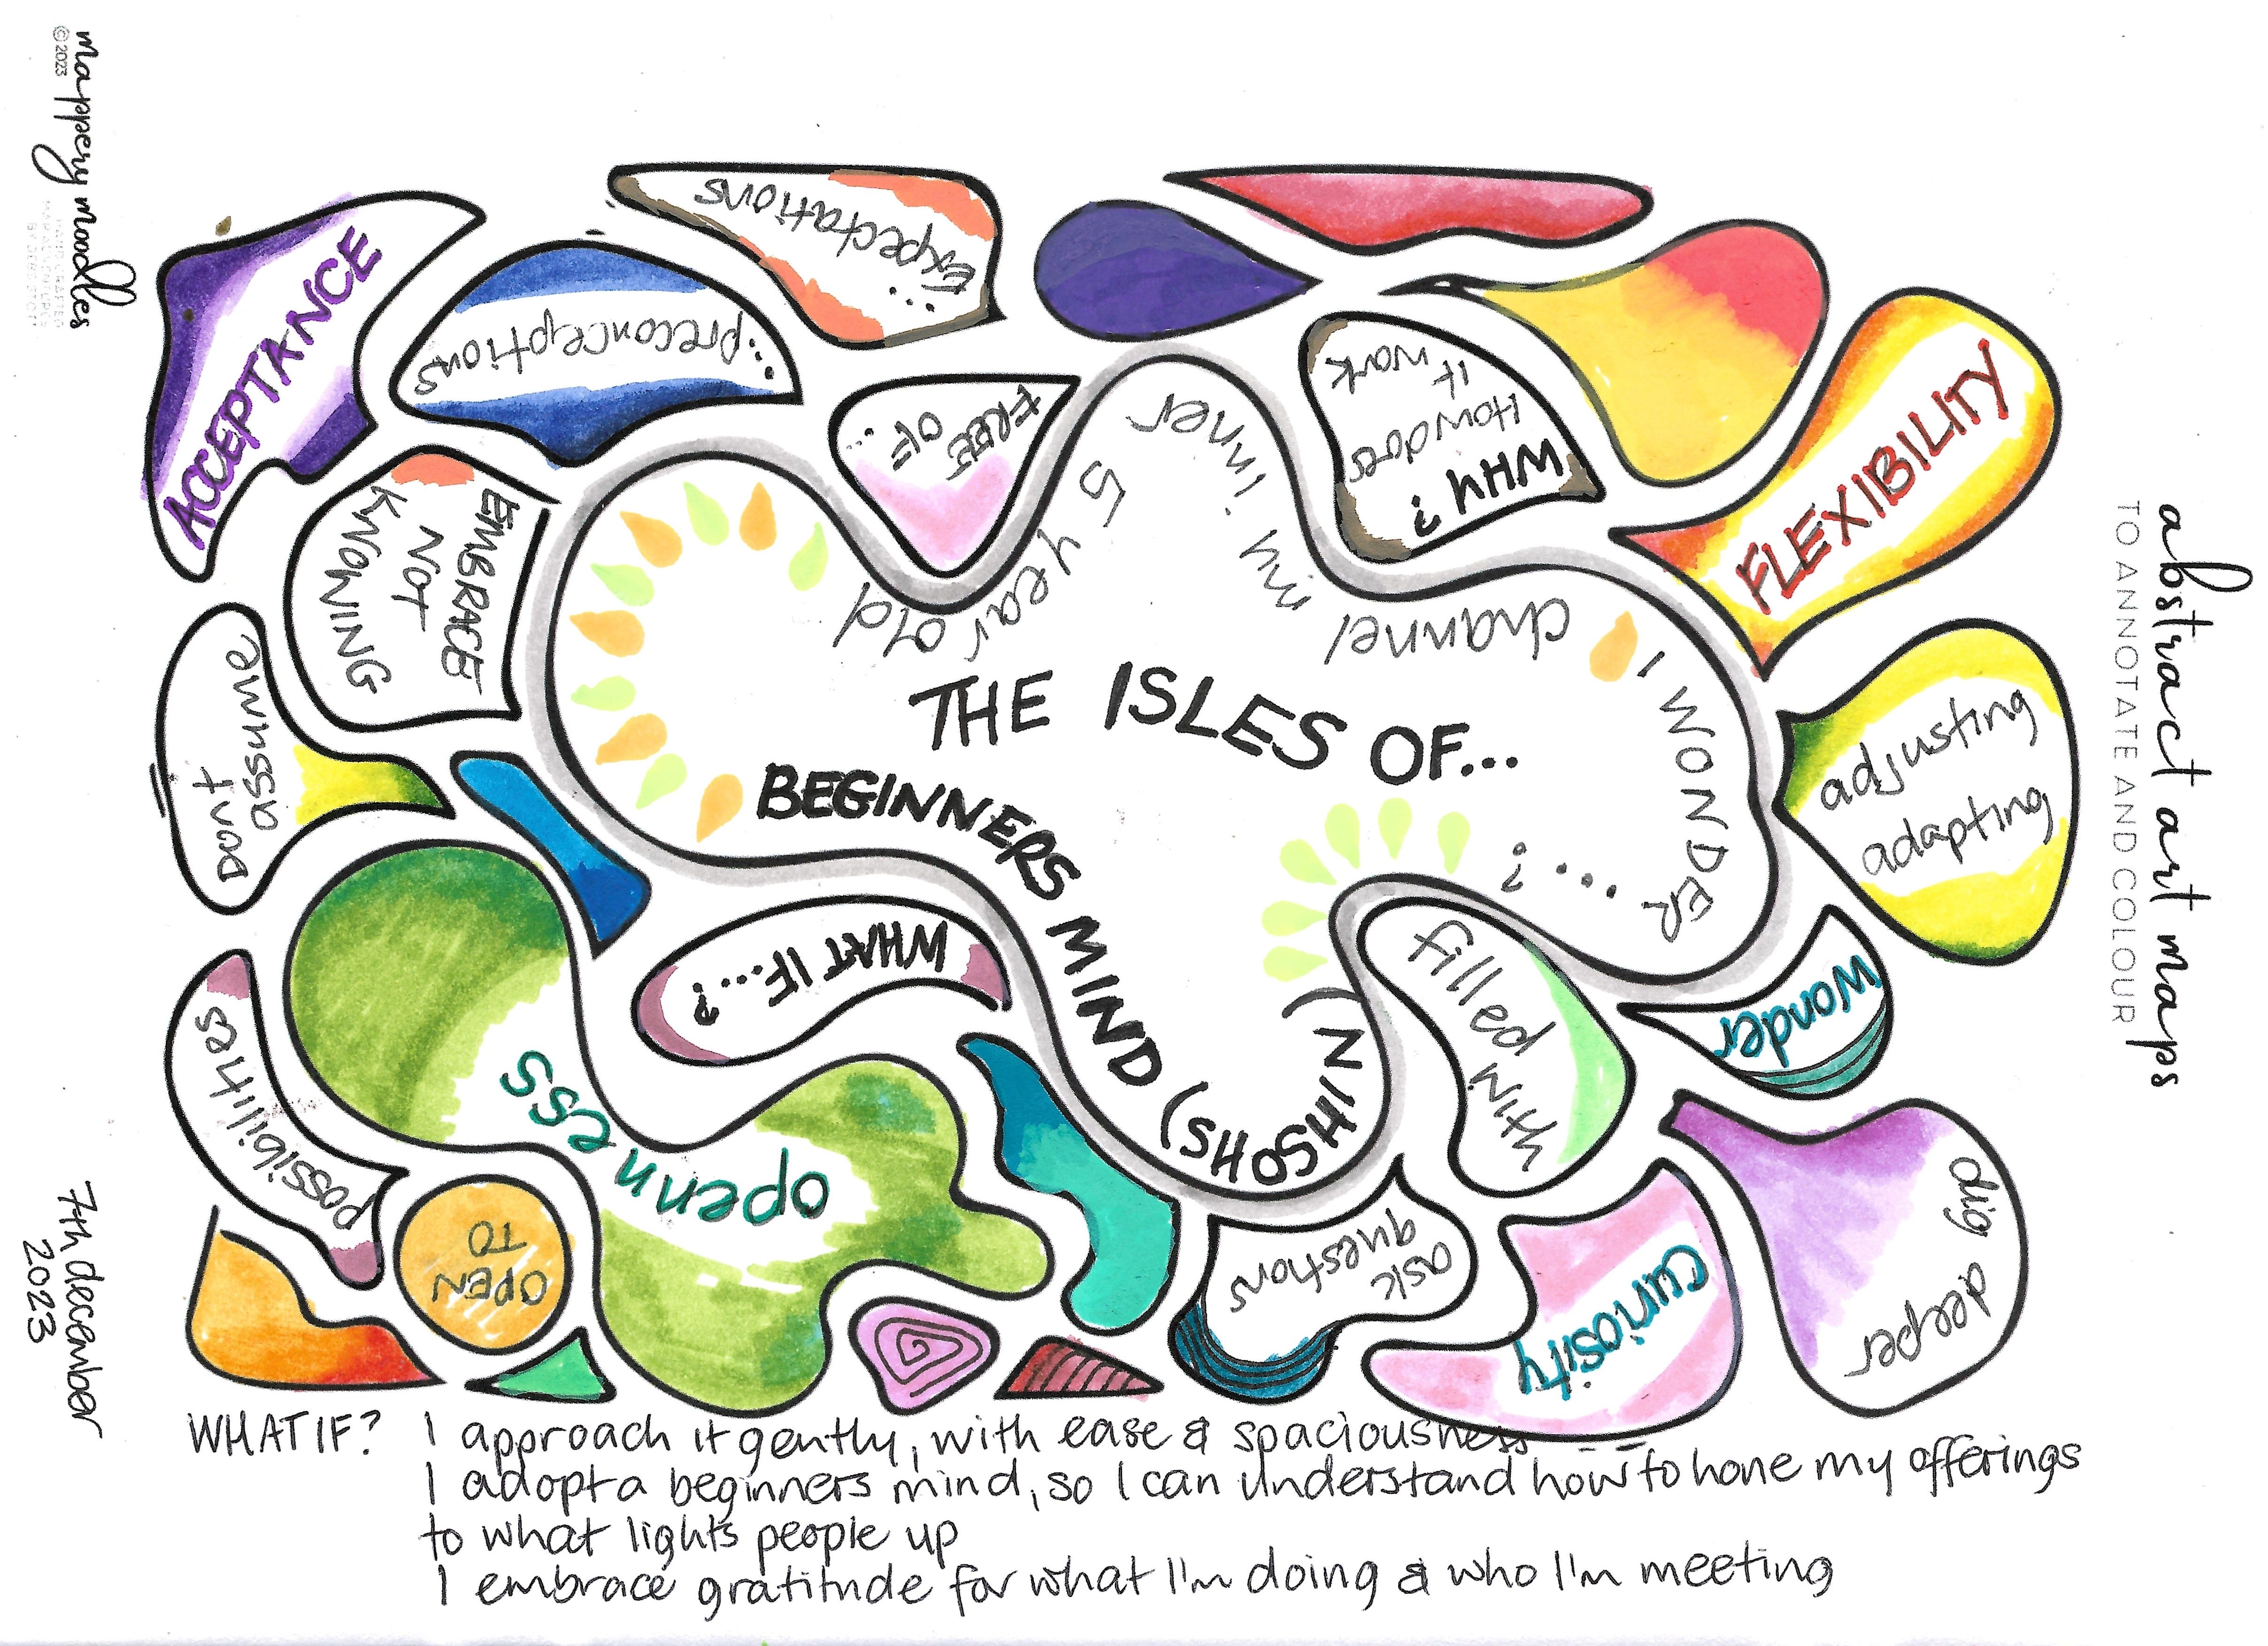 mappery moodles
© 2023
ACCEPTANCE
...preconceptions
Expectations
...
FREE
OF...
EMBRACE
NOT
KNOWING
Don't
assume
WHY?
How does
it work
FLEXIBILITY
adjusting
adapting
channel my inner 5 year old
I WONDER ...?
THE ISLES OF...
BEGINNERS MIND (SHOSHIN)
WHAT IF...?
possibilities
OPEN
TO
openness
filled with
wonder
ask
questions
curiosity
dig deeper
abstract art maps
TO ANNOTATE AND COLOUR
7th december
2023
WHAT IF? I approach it gently, with ease & spaciousness
I adopt a beginners mind, so I can understand how to hone my offerings
to what lights people up
I embrace gratitude for what I'm doing & who I'm meeting